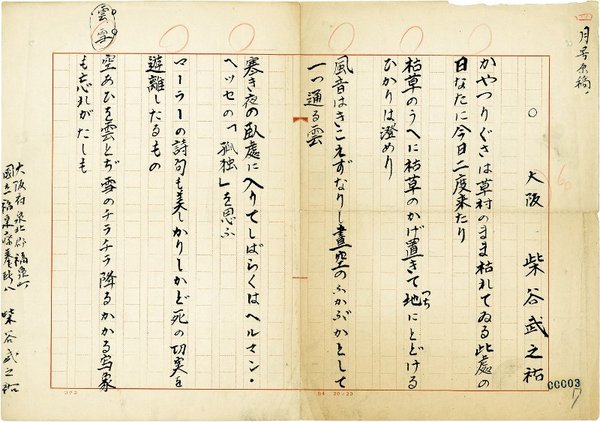 一月号原稿
○
大阪 柴谷武之祐
かやつりぐさは草村のまま枯れてゐる此處の
日なたに今日二度来たり
枯草のうへに枯草のかげ置きて地にとどける
つち
ひかりは澄めり
風音はきこえずなりし晝空のふかぶかとして
一つ通る雲
寒き夜の臥處に入りてしばらくはヘルマン・
ヘッセの「孤独」を思ふ
ローラーの詩句も美しかりしかど死の切実を
遊離したるもの
空あひを雲とぢ雪のチラチラ降るかかる写象
も忘れがたしも
雲雪
大阪府泉北郡福泉町
国立福泉療養所八 柴谷武之祐
00003
コクヨ
B4 20×20